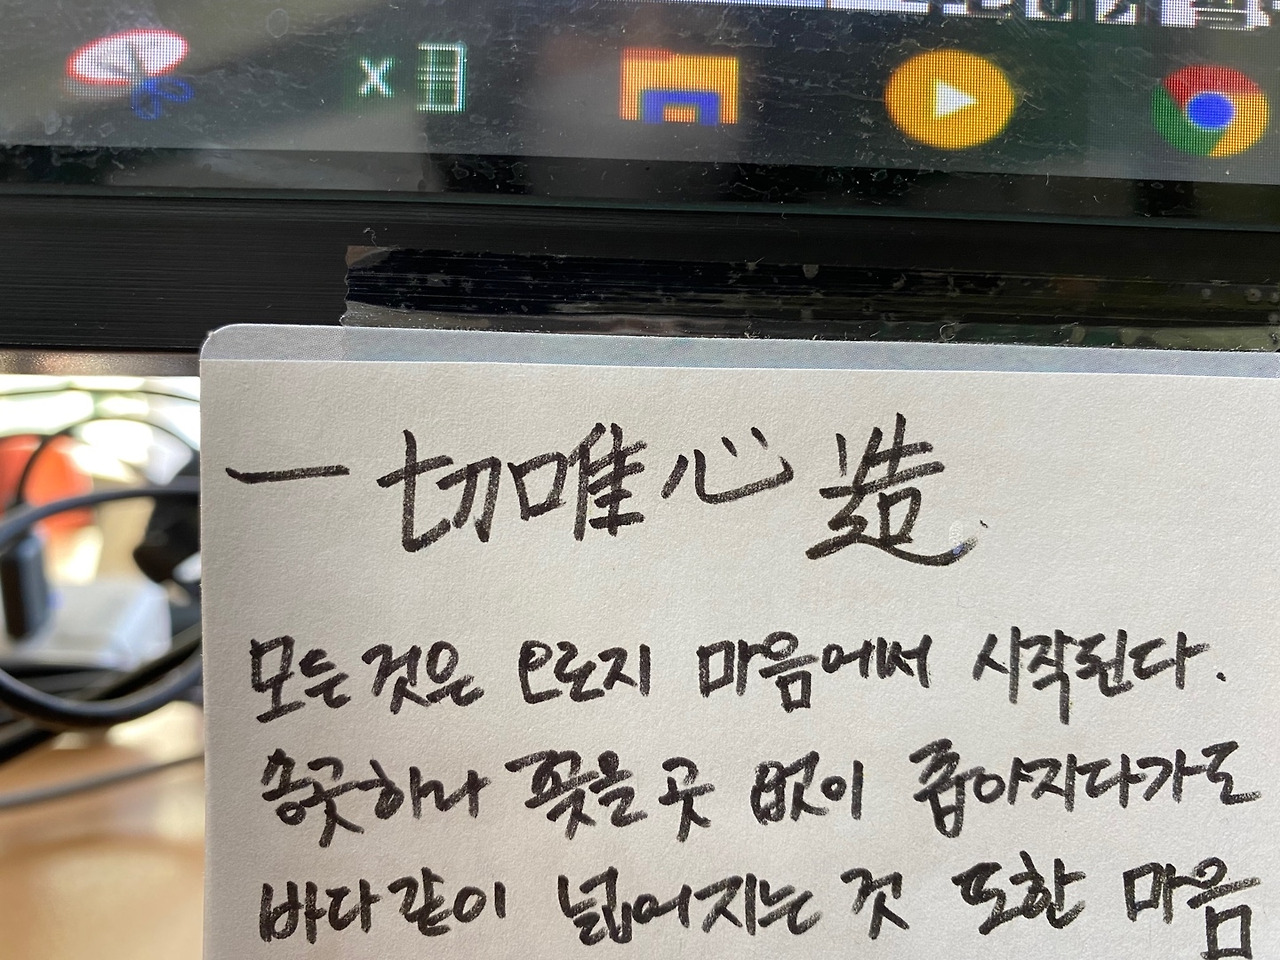 一切唯心造
모든것은 오로지 마음에서 시작된다.
송곳하나 꽂을 곳 없이 좁아지다가도
바다같이 넓어지는 것 또한 마음